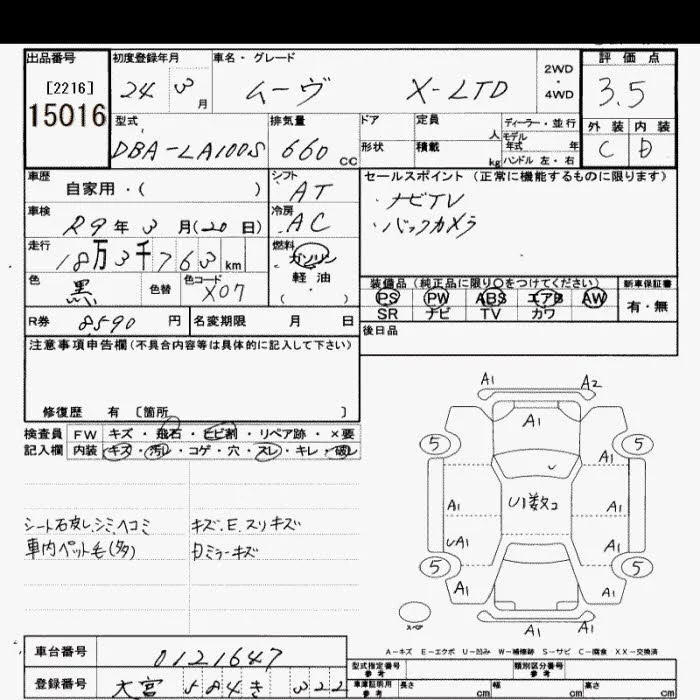 出品番号
[2216]
15016
初度登録年月
24 3月
車名・グレード
ムーヴ X-LTD
2WD
・
4WD
評価点
3.5
外装 内装
C D
型式
DBA-LA100S
排気量
660 cc
ドア
形状
定員 人
積載 kg
ディーラー・並行
モデル年式 年
ハンドル 左・右
車歴
自家用・( )
シフト
AT
車検
R9年3月(20日)
冷房
AC
走行
18万3千763km
燃料
ガソリン
軽・油
( )
色
黒
色替
色コード
X07
セールスポイント(正常に機能するものに限ります)
・ナビTV
・バックカメラ
装備品(純正品に限り○をつけてください)
PS PW ABS エアB AW
SR ナビ TV カワ
新車保証書
有・無
R券 8,590 円
名変期限 月 日
後日品
注意事項申告欄(不具合内容等は具体的に記入して下さい)
修復歴 有 〔箇所 〕
検査員 FW キズ・飛石・ヒビ割・リペア跡・×要
記入欄 内装 キズ・汚レ・コゲ・穴・スレ・キレ・破レ
シート右皮し,シミ,ヘコミ
車内ペット毛(多)
キズ.E.スリキズ
Dミラーキズ
A1 A2
A1
5 5
A1
U1数コ
A1 A1
UA1 A1
5 5
A1 A1
スペア
A1 A1
A-キズ E-エクボ U-凹み W-補修跡 S-サビ C-腐食 XX-交換済
車台番号 0121647
登録番号 大宮 584 き 322
型式指定番号
参考
類別区分番号
参考
車庫証明用
参考
長さ cm 幅 cm 高さ cm